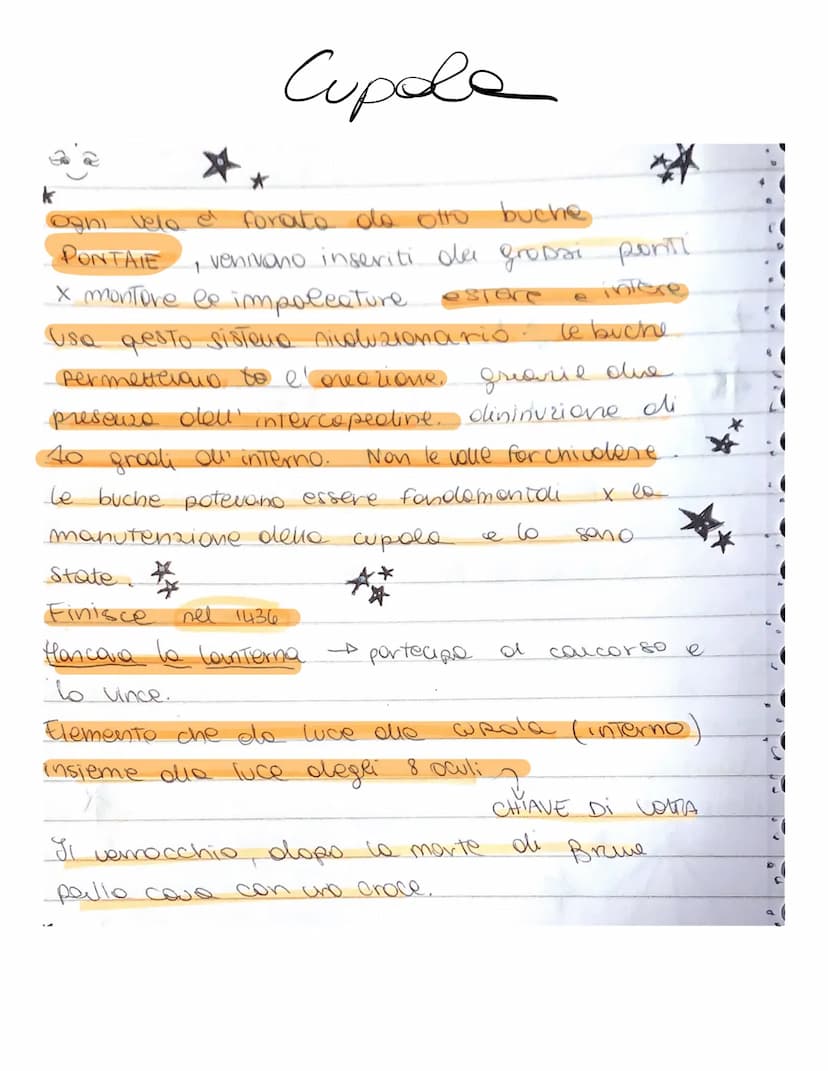 Cupola
ogni vela e' forata da otto buche
PONTAIE, venivano inseriti dei grossi ponti
x montare le impalcature estere e intere
Usa qesto sistema rivoluzionario. le buche
permettevano to l' areazione. grazie alla
presenza dell' intercapedine. diminuzione di
10 gradi all' interno. Non le volle far chiudere.
le buche potevano essere fondamentali x la
manutenzione della cupola e lo sono
state.
Finisce nel 1436
Mancava la lanterna → partecipa al concorso e
lo vince.
Elemento che da luce alla cupola (interno)
insieme alla luce degli 8 oculi
CHIAVE DI VOLTA
Il verrocchio, dopo la morte di Brune
con una croce.